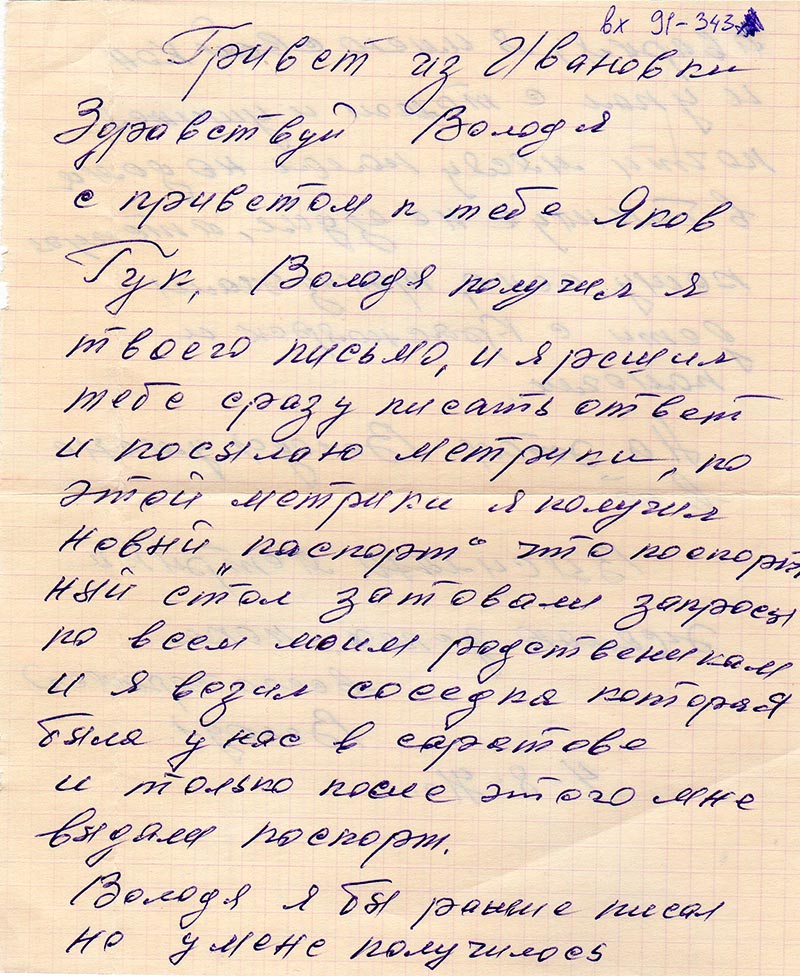 вх 91-343
Привет из Ивановки
Здравствуй Володя
с приветом к тебе Яков
Гук, Володя получил я
твоего письмо, и я решил
тебе сразу писать ответ
и посылаю метрики, по
этой метрики я получил
новый „паспорт“ что поспорт
ный стол затовали запросы
по всем моим родственикам
и я возил соседка которая
была у нас в саратове
и только после этого мне
выдали поспорт.
Володя я бы ранше писал
но у мене получилось